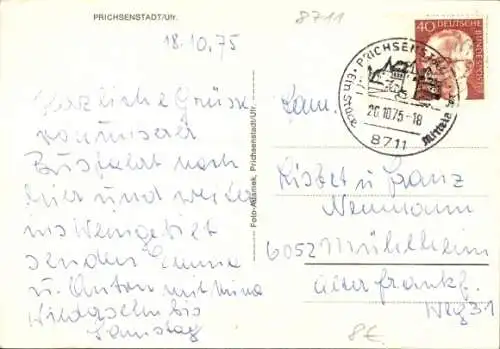 PRICHSENSTADT/Ufr.
8711
18.10.75
40
DEUTSCHE BUNDESPOST
PRICHSENSTADT
Ein Stück Mittela
26.10.75-18
8711
Herzliche Grüsse
von unserer
Busfahrt nach
hier und weiter
ins Weingebiet
senden Emma
u. Anton mit Mina
Wiedersehn bis
Samstag
Foto-Ausinek, Prichsenstadt/Ufr.
Fam.
Lisbet u Franz
Neumann
6052 Mühlheim
Alter Frankf.
Weg 31
8€